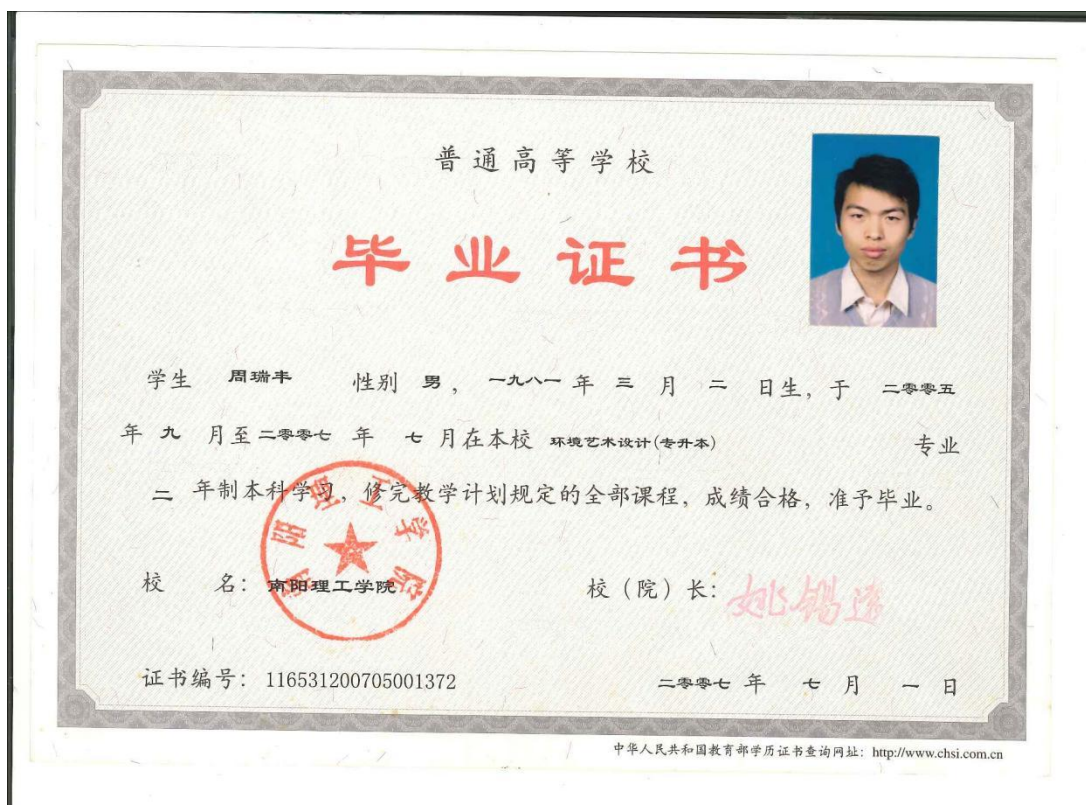 普通高等学校
毕业证书
学生 周瑞丰 性别 男, 一九八一 年 三 月 二 日生, 于 二零零五
年 九 月至 二零零七 年 七 月在本校 环境艺术设计(专升本) 专业
二 年制本科学习, 修完教学计划规定的全部课程, 成绩合格, 准予毕业。
南阳理工学院
校 名: 南阳理工学院 校(院)长: 姚锡远
证书编号: 116531200705001372 二零零七 年 七 月 一 日
中华人民共和国教育部学历证书查询网址: http://www.chsi.com.cn